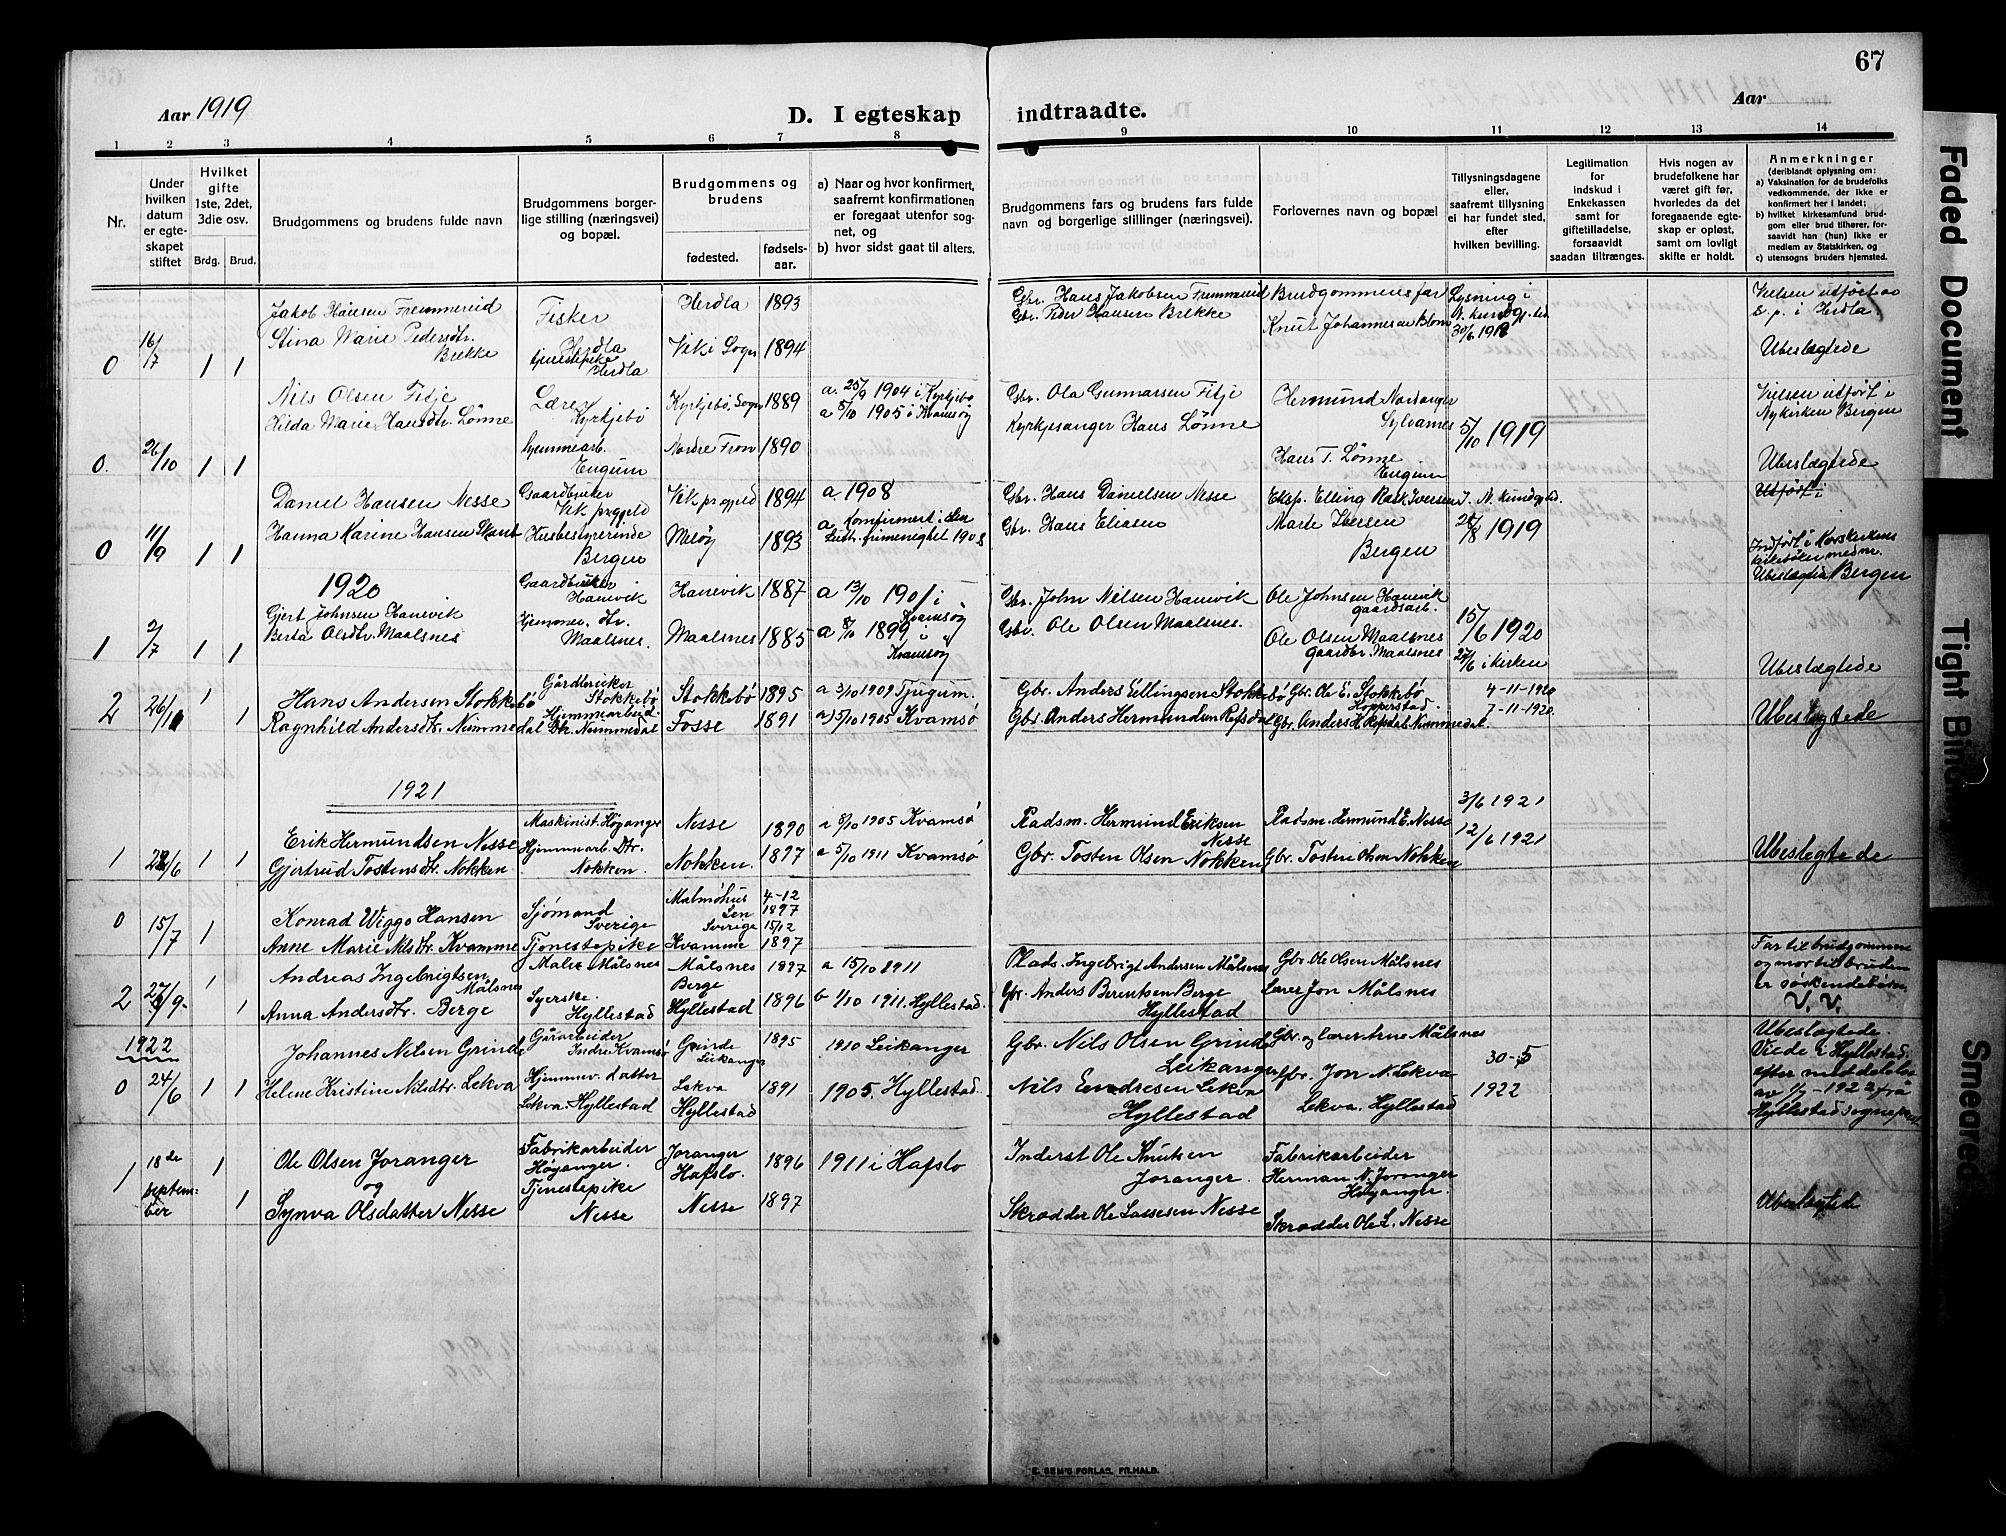 67
Aar 1919
D. I egteskap indtraadte.
Aar
1 2 3 4 5 6 7 8 9 10 11 12 13 14
Nr.
Under hvilken datum er egteskapet stiftet
Hvilket gifte 1ste, 2det, 3die osv.
Brdg. Brud.
Brudgommens og brudens fulde navn
Brudgommens borgerlige stilling (næringsvei) og bopæl.
Brudgommens og brudens
fødested.
fødselsaar.
a) Naar og hvor konfirmert, saafremt konfirmationen er foregaat utenfor sognet, og
b) hvor sidst gaat til alters.
Brudgommens fars og brudens fars fulde navn og borgerlige stillinger (næringsvei).
Forlovernes navn og bopæl
Tillysningsdagene eller, saafremt tillysning ei har fundet sted, efter hvilken bevilling.
Legitimation for indskud i Enkekassen samt for giftetilladelse, forsaavidt saadan tiltrænges.
Hvis nogen av brudefolkene har været gift før, hvorledes da det foregaaende egteskap er opløst, samt om lovligt skifte er holdt.
Anmerkninger
(deriblandt oplysning om:
a) Vaksination for de brudefolks vedkommende, der ikke er konfirmert her i landet;
b) hvilket kirkesamfund brudgom eller brud tilhører, forsaavidt han (hun) ikke er medlem av Statskirken, og
c) utensogns bruders hjemsted.
0 16/7 1 1
Jakob Hansen Fremmereid
Stina Marie Pedersdtr. Brekke
Fisker Herdla
tjenestepike Herdla
Herdla 1893
Vik i Sogn 1894
Gbr. Hans Jakobsen Fremmereid
Gbr. Peder Hansen Brekke
Brudgommens far
Knut Johannesen Blom
Lysning i
30/6 1919
Vielsen utført av
s.p. i Herdla
Ubeslægtede
0. 26/10 1 1
Nils Olsen Fitje
Hilda Marie Hansdtr. Lønne
Lærer Kyrkjebø
hjemmearb. Engum
Kyrkjebø, Sogn 1889
Nordre Fron 1890
a. 25/9 1904 i Kyrkjebø
a 8/10 1905 i Kvamsøy
Gbr. Ola Gunnarsen Fitje
Kyrkjesanger Hans Lønne
Hermund Nordanger
Sylvarnes
Hans T. Lønne
Engum
5/10 1919
Vielsen utført i
Nykirken Bergen
Ubeslægtede
0 11/9 1 1
Daniel Hansen Nesse
Hanna Karine Hansen
Gaardbruker Vik prgjeld
Husbestyrerinde Bergen
Vik prgjeld 1894
Meløy 1893
a. 1908
a Konfirmert i den
Luth. frimenighet 1908
Gbr. Hans Danielsen Nesse
Gbr. Hans Eliasen
Eksp. Elling Rask Iversen
Marie Iversen
Bergen
1919
Utført i
Indført i Korskirkens
kirkebøker med nr.
Ubeslægtede Bergen
1920
1 2/7 1 1
Gjert Johnsen Hanevik
Berta Olsdtr. Maalsnes
Gaardbruker Hanevik
Hjemmev. dtr. Maalsnes.
Hanevik 1887
Maalsnes 1885
a 13/10 1901 i Kvamsøy
a 8/10 1899 i Kvamsøy
Gbr. John Nilsen Hanevik
Gbr. Ole Olsen Maalsnes.
Ole Johnsen Hanevik
gaardsarb.
Ole Olsen Maalsnes
gaardbr. Maalsnes
15/6 1920
27/6 i kirken
Ubeslægtede
2 26/11 1 1
Hans Andersen Stokkebø
Ragnhild Andersdtr. Nummedal
Gårdbruker Stokkebø
Hjemmearbeid. Dtr. Nummedal
Stokkebø 1895
Fosse 1891
a 3/10 1909 Tjugum.
a) 15/10 1905 Kvamsø
Gbr. Anders Ellingsen Stokkebø
Gbr. Anders Hermundsen Refsdal
Gbr. Ole E. Stokkebø
Hopperstad
Gbr. Anders H. Refsdal Nummedal.
4-11-1920
7-11-1920
Ubeslægtede
1921
1 28/6 1 1
Erik Hermundsen Nesse
Gjertrud Tostensdtr. Nokken
Maskinist. Høyanger
Hjemmearb. Dtr. Nokken.
Nesse 1890
Nokken. 1897
i 8/10 1905 Kvamsø
a 5/10 1911 Kvamsø
Pladsm. Hermund Eriksen Nesse
Gbr. Tosten Olsen Nokken
Pladsm. Hermund E. Nesse
Gbr. Tosten Olsen Nokken
3/6 1921
12/6 1921
Ubeslegtede
0 15/7 1
Konrad Wiggo Hansen
Anne Marie Nilsdtr. Kvamme
Sjømand Sverige
Tjenestepike
Malmøhus Len Sverige 4-12 1897
Kvamme 15/12 1897
2 27/9 1 1
Andreas Ingebrigtsen Målsnes
Anna Andersdtr. Berge
Maler Målsnes
Syerske. Hyllestad
Målsnes 1897
Berge Hyllestad 1896
a 15/10 1911
b 1/10 1911. Hyllestad.
Plads. Ingebrigt Andersen Målsnes
Gbr. Anders Berentsen Berge
Hyllestad
Gbr. Ole Olsen Målsnes
Lærer Jon Målsnes
Far til brudgommen
og mor til bruden
er søskendebørn
V. V.
1922
0 24/6 1 1
Johannes Nilsen Grinde
Helene Kristine Nilsdtr. Lekva
Gårarbeider Indre Kvamsø
Hjemmev. datter
Lekva. Hyllestad
Grinde Leikanger 1895
Lekva Hyllestad 1891
1910 Leikanger
1905. Hyllestad.
Gbr. Nils Olsen Grinde
Leikanger
Nils Endresen Lekva
Hyllestad
Gbr. og lærer Arne Målsnes
Gbr. Jon N. Lekva
Lekva. Hyllestad
30-5
1922
Ubeslægtede.
Viede i Hyllestad.
efter meddelelse
av 1/7-1922 frå
Hyllestad sogneprest.
1 18de september 1 1
Ole Olsen Joranger
og
Synva Olsdatter Nesse
Fabrikarbeider
Høyanger.
Tjenestepike
Nesse
Joranger Hafslo. 1896
Nesse 1897
1911 i Hafslo
Inderst Ole Knutsen
Joranger.
Skrædder Ole Lassesen Nesse
Fabrikarbeider
Herman N. Joranger
Høyanger.
Skrædder Ole L. Nesse
Ubeslægtede
E. SEM'S FORLAG, FR.HALD.
Faded Document
Tight Binding
Smeared